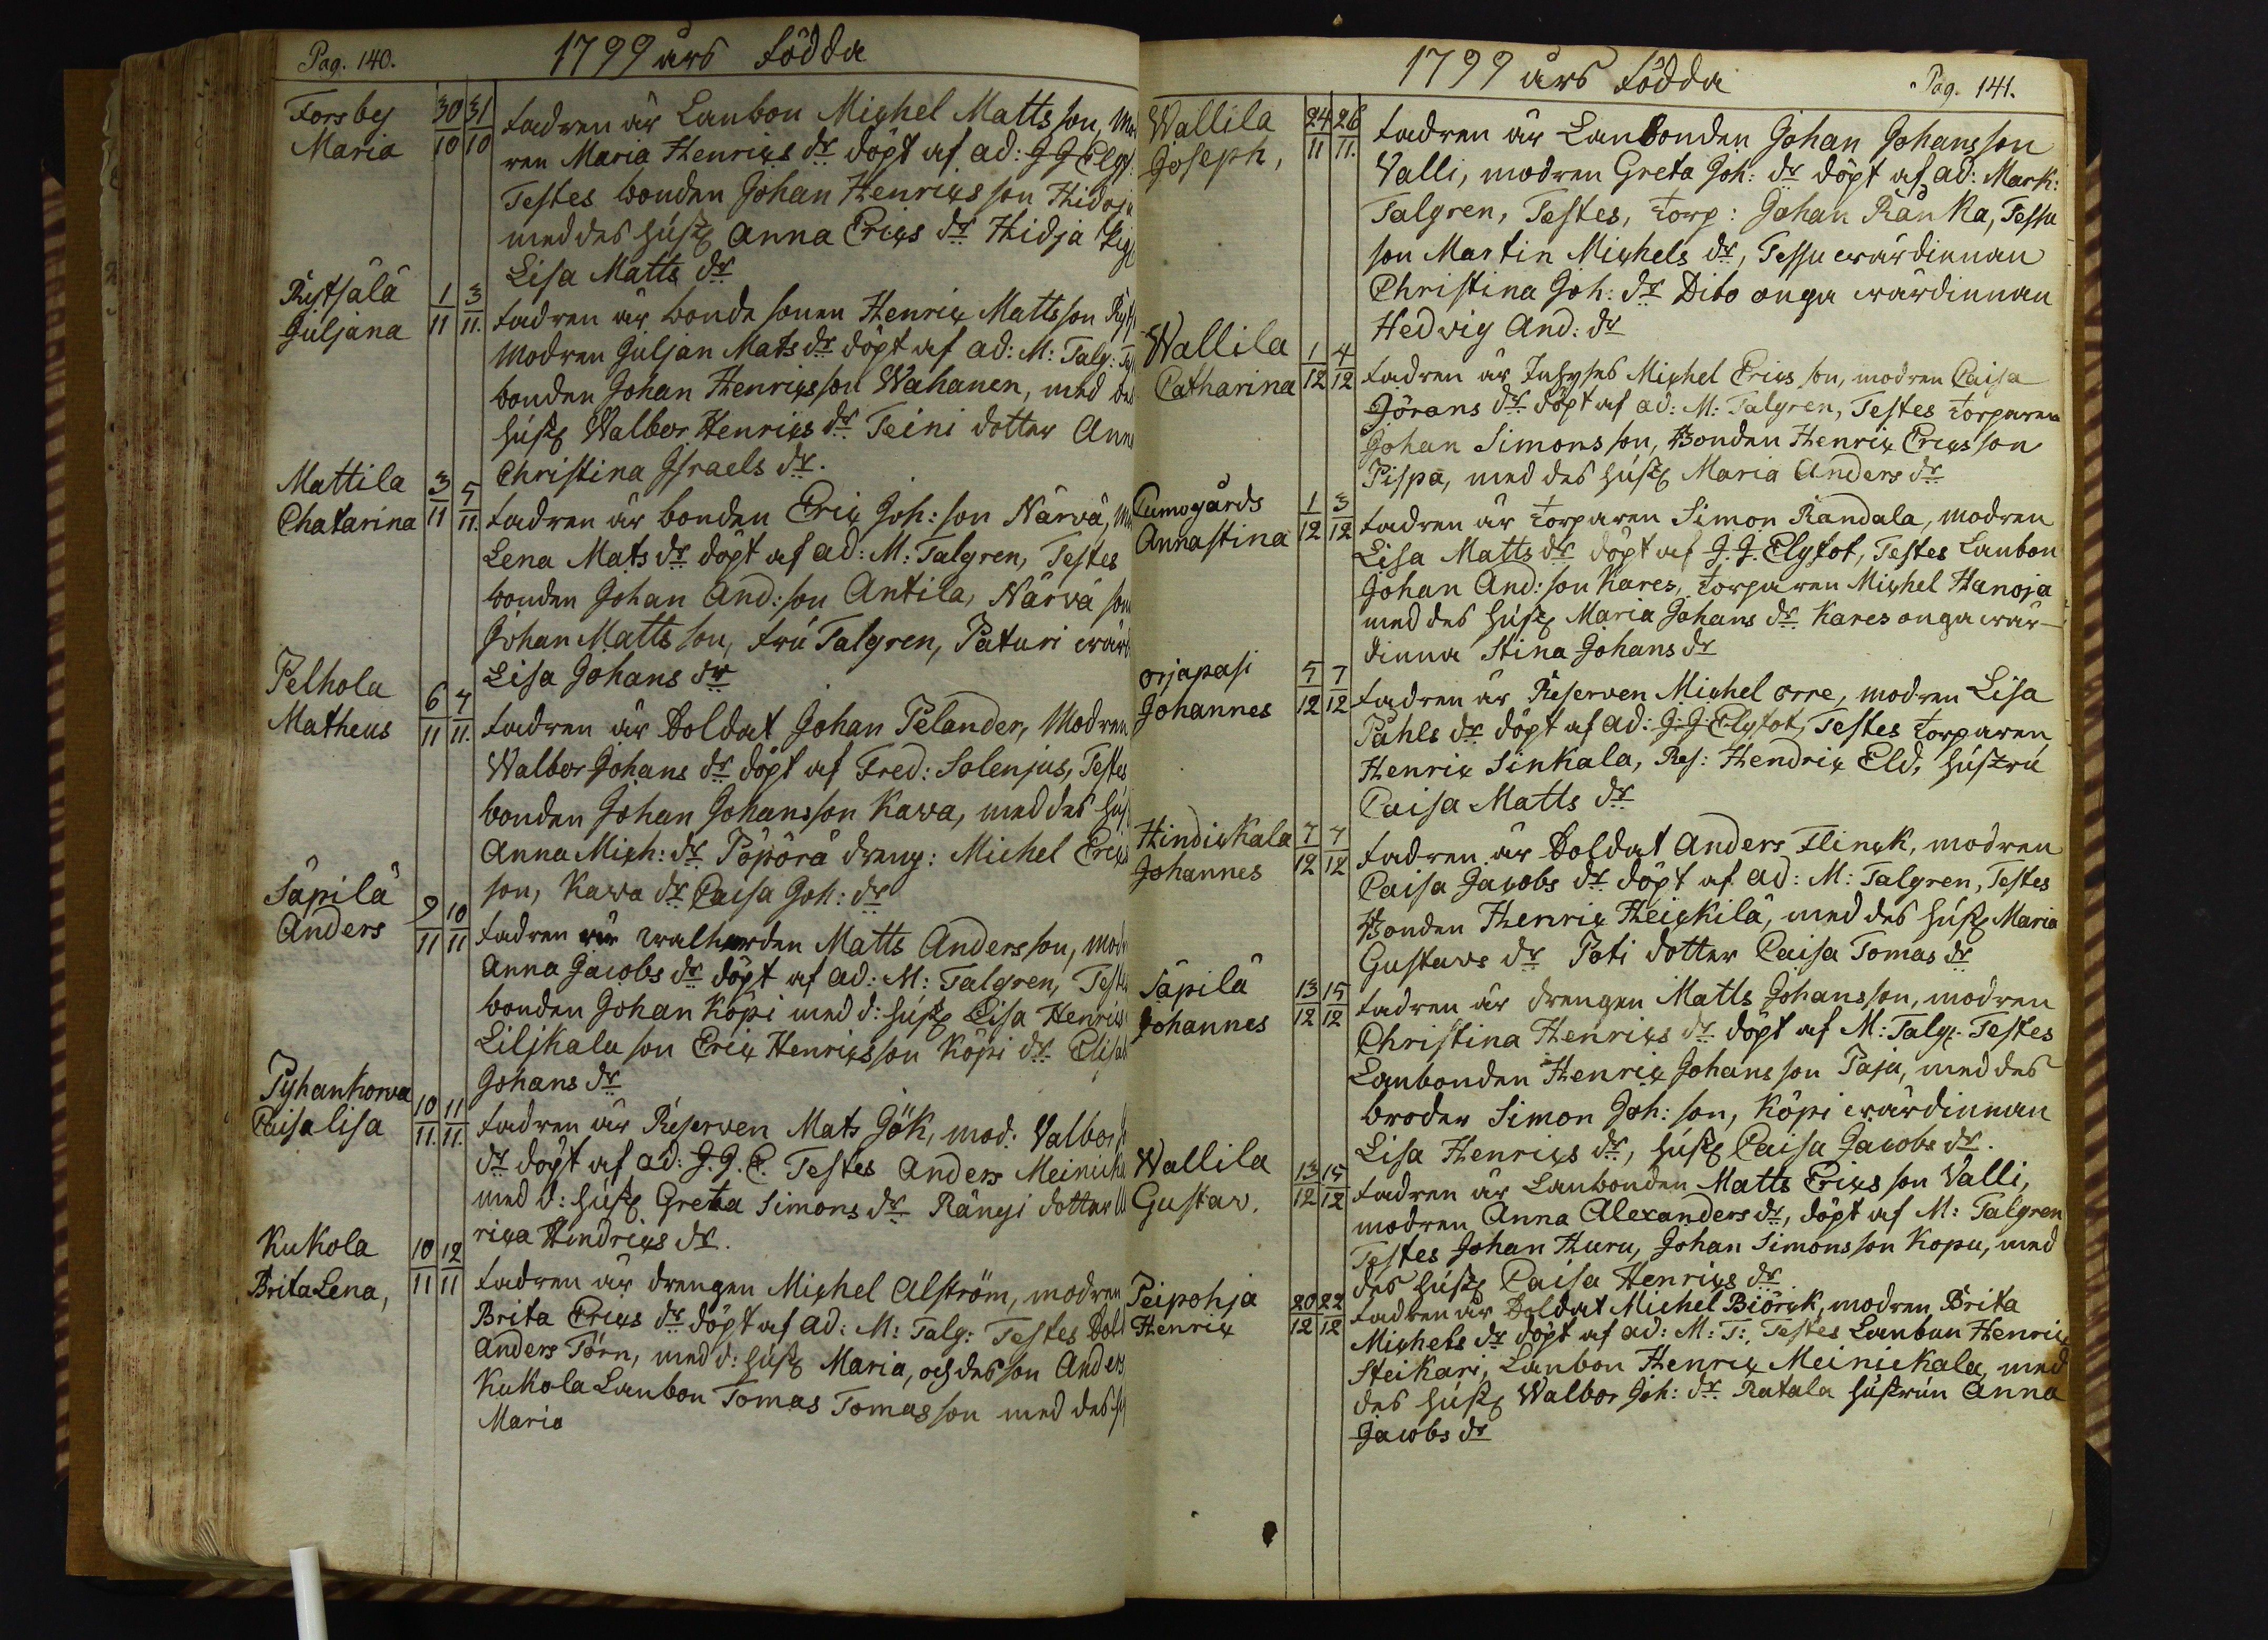 Pag. 140.
1799 års Födda
Forsby
Maria
30/10 31/10
Fadren är Lanbon Michel Matts son, Mo
ren Maria Henrics dr döpt af ad: J J Elgf:
Testes bonden Johan Henrics son Hidoja
med des hust Anna Erics dr Hidja Pig
Lisa Matts dr
Rystsälä
Juljana
1/11 3/11.
Fadren är bonde sonen Henric Mattsson Ryts
Modren Juljan Mats dr döpt af ad: M: Talg: Tes
bonden Johan Henricsson Wahanen, med des
hust Walbor Henrics dr Teini dotter Ann
Christina Israels dr.
Mattila
Chatarina
3/11 5/11.
Fadren är bonden Eric Joh: son Närvä, Mo
Lena Mats dr döpt af ad: M: Talgren, Testes
bonden Johan And: son Antila, Närvä son
Johan Matts son, fru Talgren, Paturi wärd
Lisa Johans dr
Pelhola
Matheus
6/11 7/11.
Fadren är Soldat Johan Pelander, Modren
Walbor Johans dr döpt af Fred: Solenjus, Testes
bonden Johan Johansson Kawa, med des hus
Anna Mich: dr Pöpörä dreng: Michel Erics
son, Kawa dr Caisa Joh: dr
Säpilä
Anders
9/11 10/11
Fadren är walherden Matts Anders son, mod
Anna Jacobs dr döpt af ad: M: Talgren, Teste
bonden Johan Köpi med d: hust Lisa Henrics
Liljkala son Eric Henricsson Köpi dr Elisab
Johans dr
Pyhankorva
Caisalisa
10/11. 11/11.
Fadren är Reserven Mats Gök, mod: Valbor
dr döpt af ad: J. J. E. Testes Anders Meinick
med d: hust Greta Simons dr Rängi dotter U
rica Hindrics dr.
Kukola
Brita Lena,
10/11 12/11
Fadren är drengen Michel Alström, modren
Brita Erics dr döpt af ad: M: Talg: Testes Sold
Anders Törn, med d: hust Maria, och des son Anders
Kukola Lanbon Tomas Tomas son med des h
Maria
1799 års Födda
Pag. 141.
Wallila
Joseph,
24/11 26/11.
Fadren är Lanbonden Johan Johansson
Valli, modren Greta Joh: dr döpt af ad: Mark:
Talgren, Testes, Torp: Johan Rånka, Tessu
son Martin Michels dr, Tessu wärdinnan
Christina Joh: dr Dito onga wärdinnan
Hedvig And: dr
Wallila
Catharina
1/12 4/12
Fadren är Inhyses Michel Erics son, modren Caisa
Jörans dr döpt af ad: M: Talgren, Testes Torparen
Johan Simons son, Bonden Henric Ericsson
Pispa, med des hust Maria Anders dr
Cumogårds
Annastina
1/12 3/12
Fadren är Torparen Simon Randala, modren
Lisa Matts dr döpt af J. J. Elgfot, Testes Lanbon
Johan And: son Kares, Torparen Michel Hanoja
med des hust Maria Johans dr Kares onga wär-
dinna Stina Johans dr
orjapasi
Johannes
5/12 7/12
Fadren är Reserven Michel orre, modren Lisa
Påhls dr döpt af ad: J. J. Elgfot, Testes Torparen
Henric Sinkala, Res: Hendric Eld, hustru
Caisa Matts dr
Hindickala
Johannes
7/12 7/12
Fadren är Soldat Anders Flinck, modren
Caisa Jacobs dr döpt af ad: M: Talgren, Testes
Bonden Henric Heickilä, med des hust Maria
Gustavs dr Poti dotter Caisa Tomas dr
Säpilä
Johannes
13/12 15/12
Fadren är drengen Matts Johansson, modren
Christina Henrics dr döpt af M: Talg: Testes
Lanbonden Henric Johans son Paja, med des
broder Simon Joh: son, Köpi wärdinnan
Lisa Henrics dr, hust Caisa Jacobs dr.
Wallila
Gustav.
13/12 15/12
Fadren är Lanbonden Matts Erics son Valli,
modren Anna Alexanders dr, döpt af M: Talgren
Testes Johan Huru, Johan Simonsson Kopu, med
des hust Caisa Henrics dr
Peipohja
Henric
20/12 22/12
Fadren är Soldat Michel Biörck, modren Brita
Michels dr döpt af ad: M: T:, Testes Lanbun Henric
Steikari, Lanbon Henric Meinickala, med
des hust Walbor Joh: dr Ratala hustrun Anna
Jacobs dr